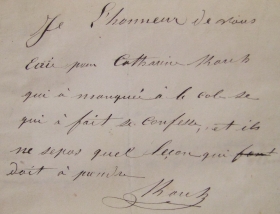 Je l'honneur de vous
Ecrir pour Catherine Kareh
qui à manquée à le cole se
qui à fait se Confesse, et ils
ne sepos quel leçon qui font
doit à prendre